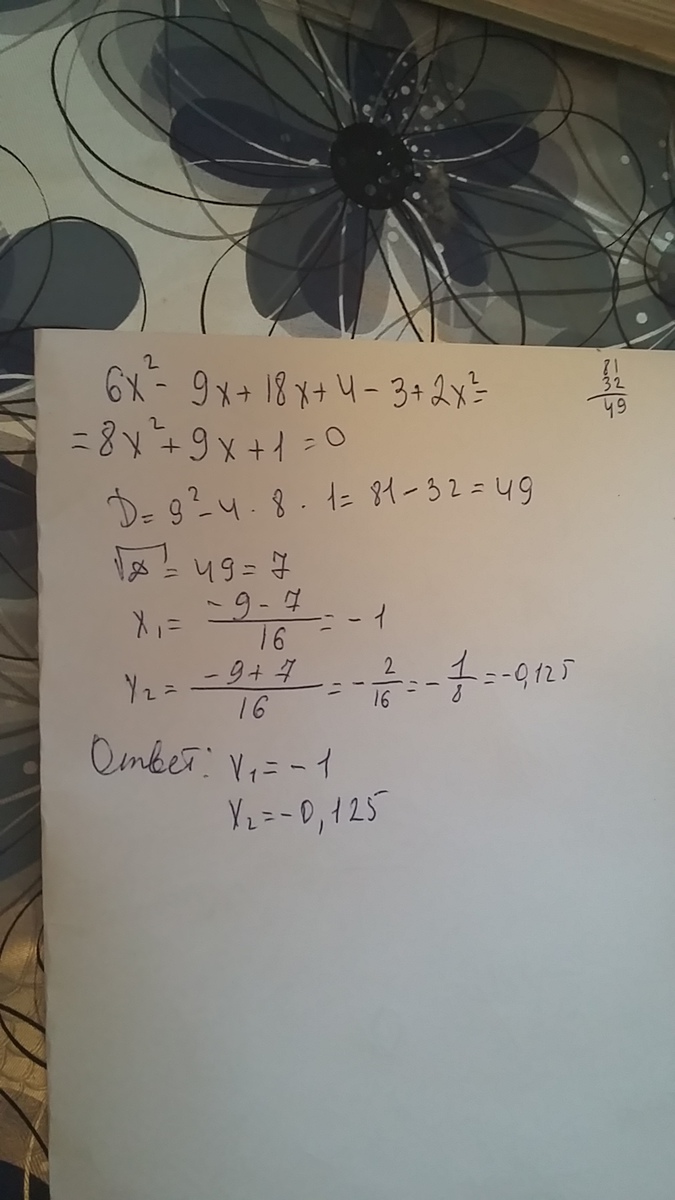 6x² - 9x + 18x + 4 - 3 + 2x² =
81
32
49
= 8x² + 9x + 1 = 0
D = 9² - 4 · 8 · 1 = 81 - 32 = 49
√D = 49 = 7
x₁ = (-9 - 7)/16 = -1
x₂ = (-9 + 7)/16 = -2/16 = -1/8 = -0,125
Ответ: x₁ = -1
x₂ = -0,125